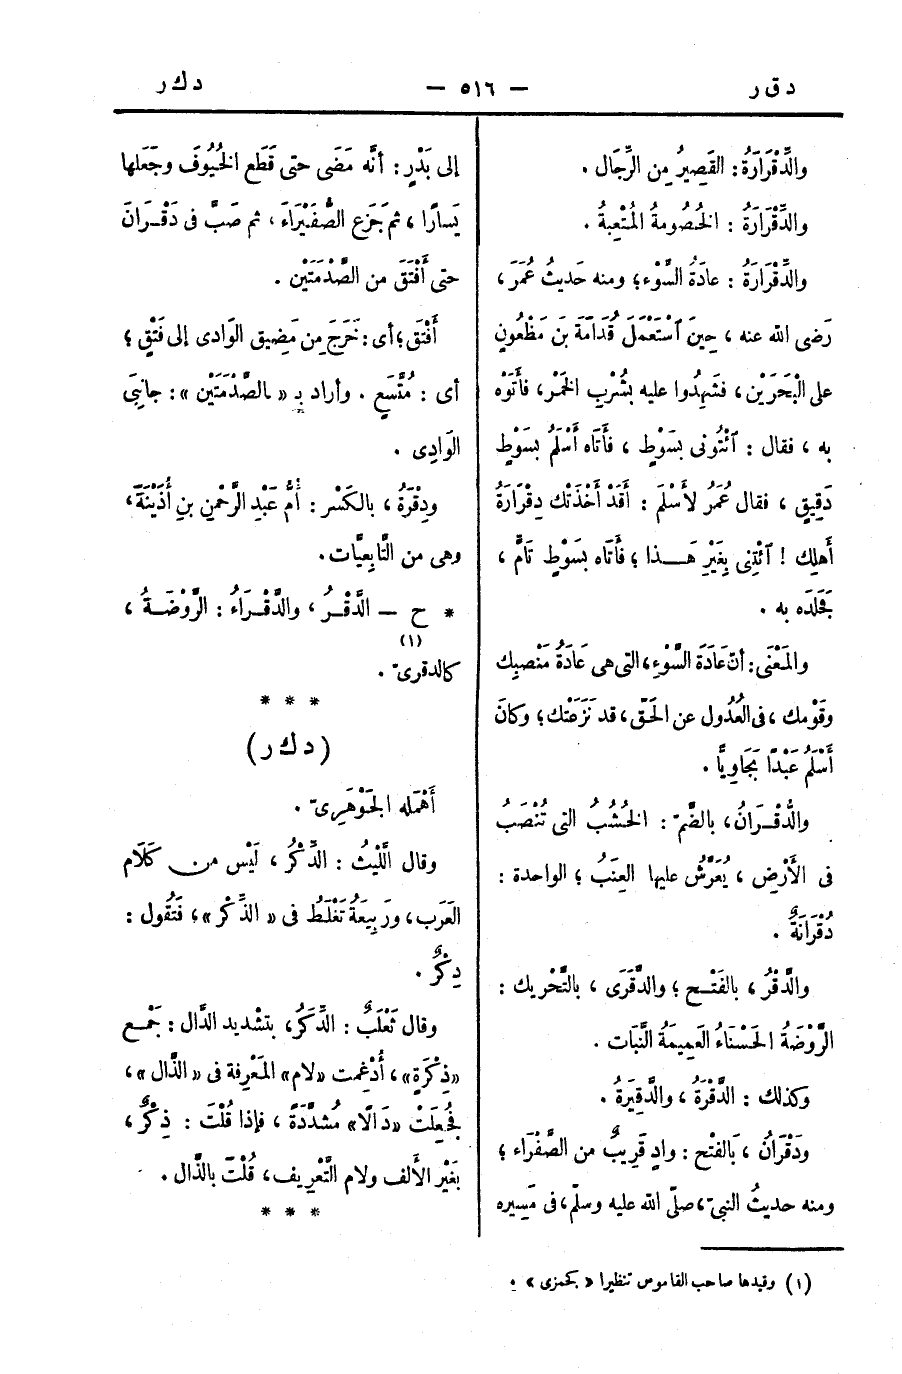 دقر — ٥١٦ — دكر
والدِّقْرَارَةُ: القَصِيرُ مِن الرِّجَال .
والدِّقْرَارَةُ : الخُصُومةُ المُتْعِبةُ .
والدِّقْرَارَةُ : عادَةُ السَّوْءِ؛ ومنه حَديثُ عُمَرَ ،
رَضى الله عنه ، حِينَ ٱسْتَعْمَلَ قُدَامَةَ بنَ مَظْعُونٍ
على الْبَحْرَيْن ، فشَهِدُوا عليه بشُرْبِ الخَمْر، فأتَوْه
به ، فقال : ٱئْتُونى بسَوْطٍ ، فَأَتاه أَسْلَمُ بسَوْطٍ
دَقِيقٍ ، فقال عُمَرُ لأَسْلَم : أقَدْ أخَذَتْك دِقْرَارَةُ
أهلِك ! ٱئْتِنِى بِغَيْرِ هَـذا ؛ فأتاه بسَوْطٍ تامٍّ ،
فَجَلَدَه به .
والمَعْنَى: أنّ عَادَةَ السَّوْءِ، التى هى عَادَةُ مَنْصِبِك
وقَوْمِك ، فى العُدُول عن الحَقّ، قد نَزَعَتْك؛ وكانَ
أَسْلَمُ عَبْدًا بَجَاوِيًّا .
والدُّقْـرَانُ، بالضَّمّ : الخُشُبُ التى تُنْصَبُ
فى الأَرْضِ ، يُعَرَّشُ عليها العِنَبُ ؛ الواحدة :
دُقْرَانَةٌ .
والدَّقْرُ ، بالفَتْـح ؛ والدَّقَرَى ، بالتَّحْريك :
الرَّوْضَةُ الحَسْنَاءُ العَمِيمَةُ النَّبَات .
وكذلك : الدَّقْرَةُ ، والدَّقِيرَةُ .
ودَقْرَانُ ، بَالفَتْح : وادٍ قَرِيبٌ من الصَّفْرَاء ؛
ومنه حديثُ النبىّ، صلّى الله عليه وسلّم، فى مَسِيره
إلى بَدْرٍ : أنَّه مَضَى حتى قَطَع الخُيُوفَ وجَعَلها
يَسارًا ، ثم جَزَع الصُّفَيْرَاءَ ، ثم صَبَّ فى دَقْـرَانَ
حتى أَفْتَقَ من الصَّدْمَتَيْن .
أَفْتَق؛ أى: خَرَجَ مِن مَضِيق الوَادى إلى فَتْقٍ ؛
أى : مُتَّسَعٍ . وأراد بـ « الصَّدْمَتَيْن »: جانِبَى
الوَادِى .
ودِقْرَةُ ، بالكَسْر : أُمُّ عَبْدِ الرَّحْمٰنِ بنِ أُذَيْنَةَ،
وهى من التَّابِعِيَّات.
* ح — الدَّقْـرُ ، والدَّقْـرَاءُ : الرَّوْضَـةُ ،
كالدقرىّ (١) .
* * *
(دكر)
أَهْمَله الجَوْهَرِىّ .
وقال الَّليْثُ : الدِّكْرُ ، لَيْس من كَلَام
العَرَب، ورَبِيعَةُ تَغْلَطُ فى « الذِّكْر »؛ فَتَقُول :
دِكْرٌ .
وقال ثَعْلَبٌ : الدِّكَرُ، بتشْديد الدَّال : جَمْع
«ذِكْرَةٍ» ، أُدْغِمت «لام» المَعْرِفة فى «الذَّال» ،
فجُعِلَتْ «دَالًا» مُشدَّدَةً ، فإذا قُلْتَ : ذِكْرٌ ،
بَغَيْر الأَلف ولام التَّعْرِيف، قُلْتَ بالذَّال .
* * *
(١) وقيدها صاحب القاموس تنظيرا « بجمزى » .